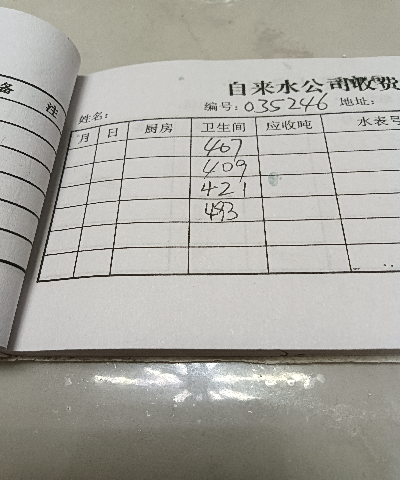 备 注
自来水公司收费
编号：035246 地址：
姓名：
月 日 厨房 卫生间 应收吨 水表号
407
409
421
493